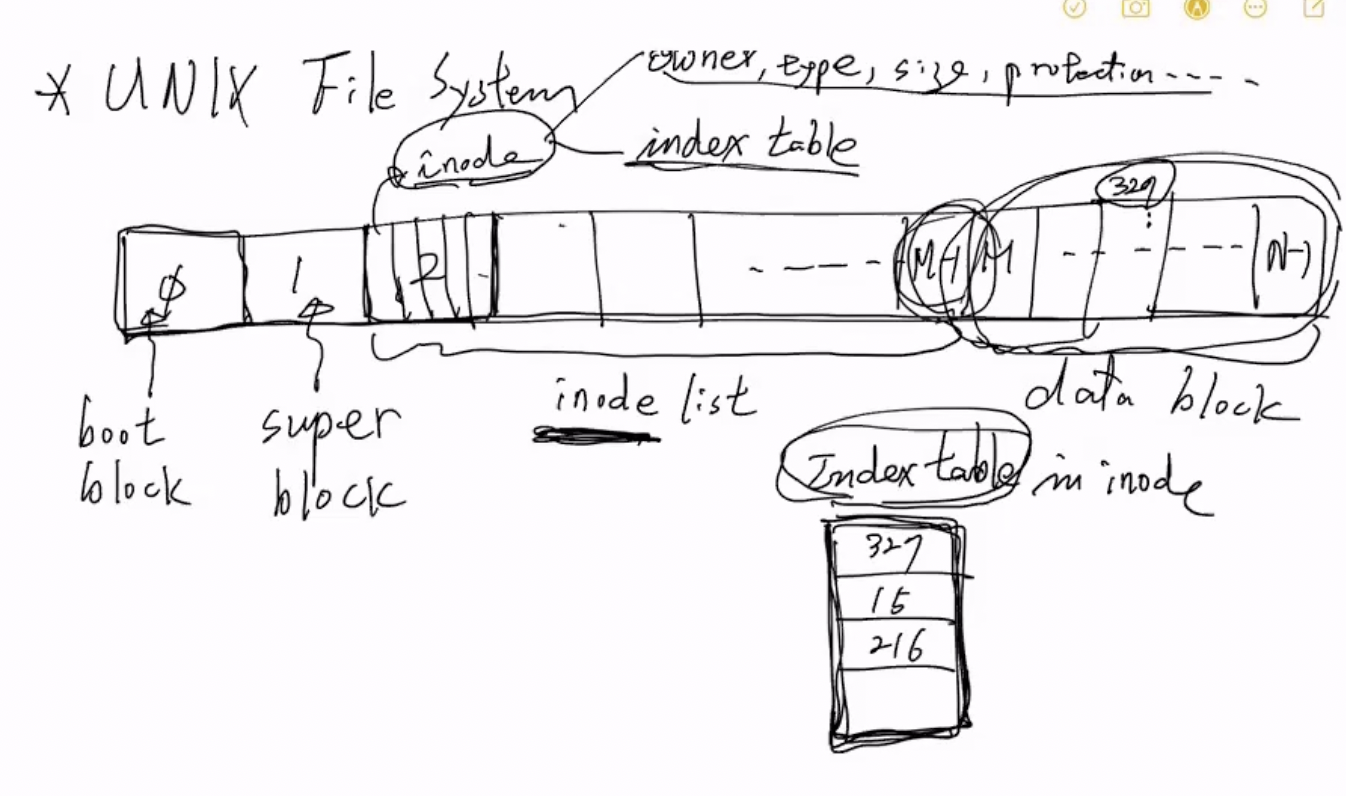 * UNIX File System
owner, type, size, protection ----
inode
index table
329
0 1 2 ---- M-1 M -- ---- N-1
boot block
super block
inode list
data block
Index table in inode
329
15
216